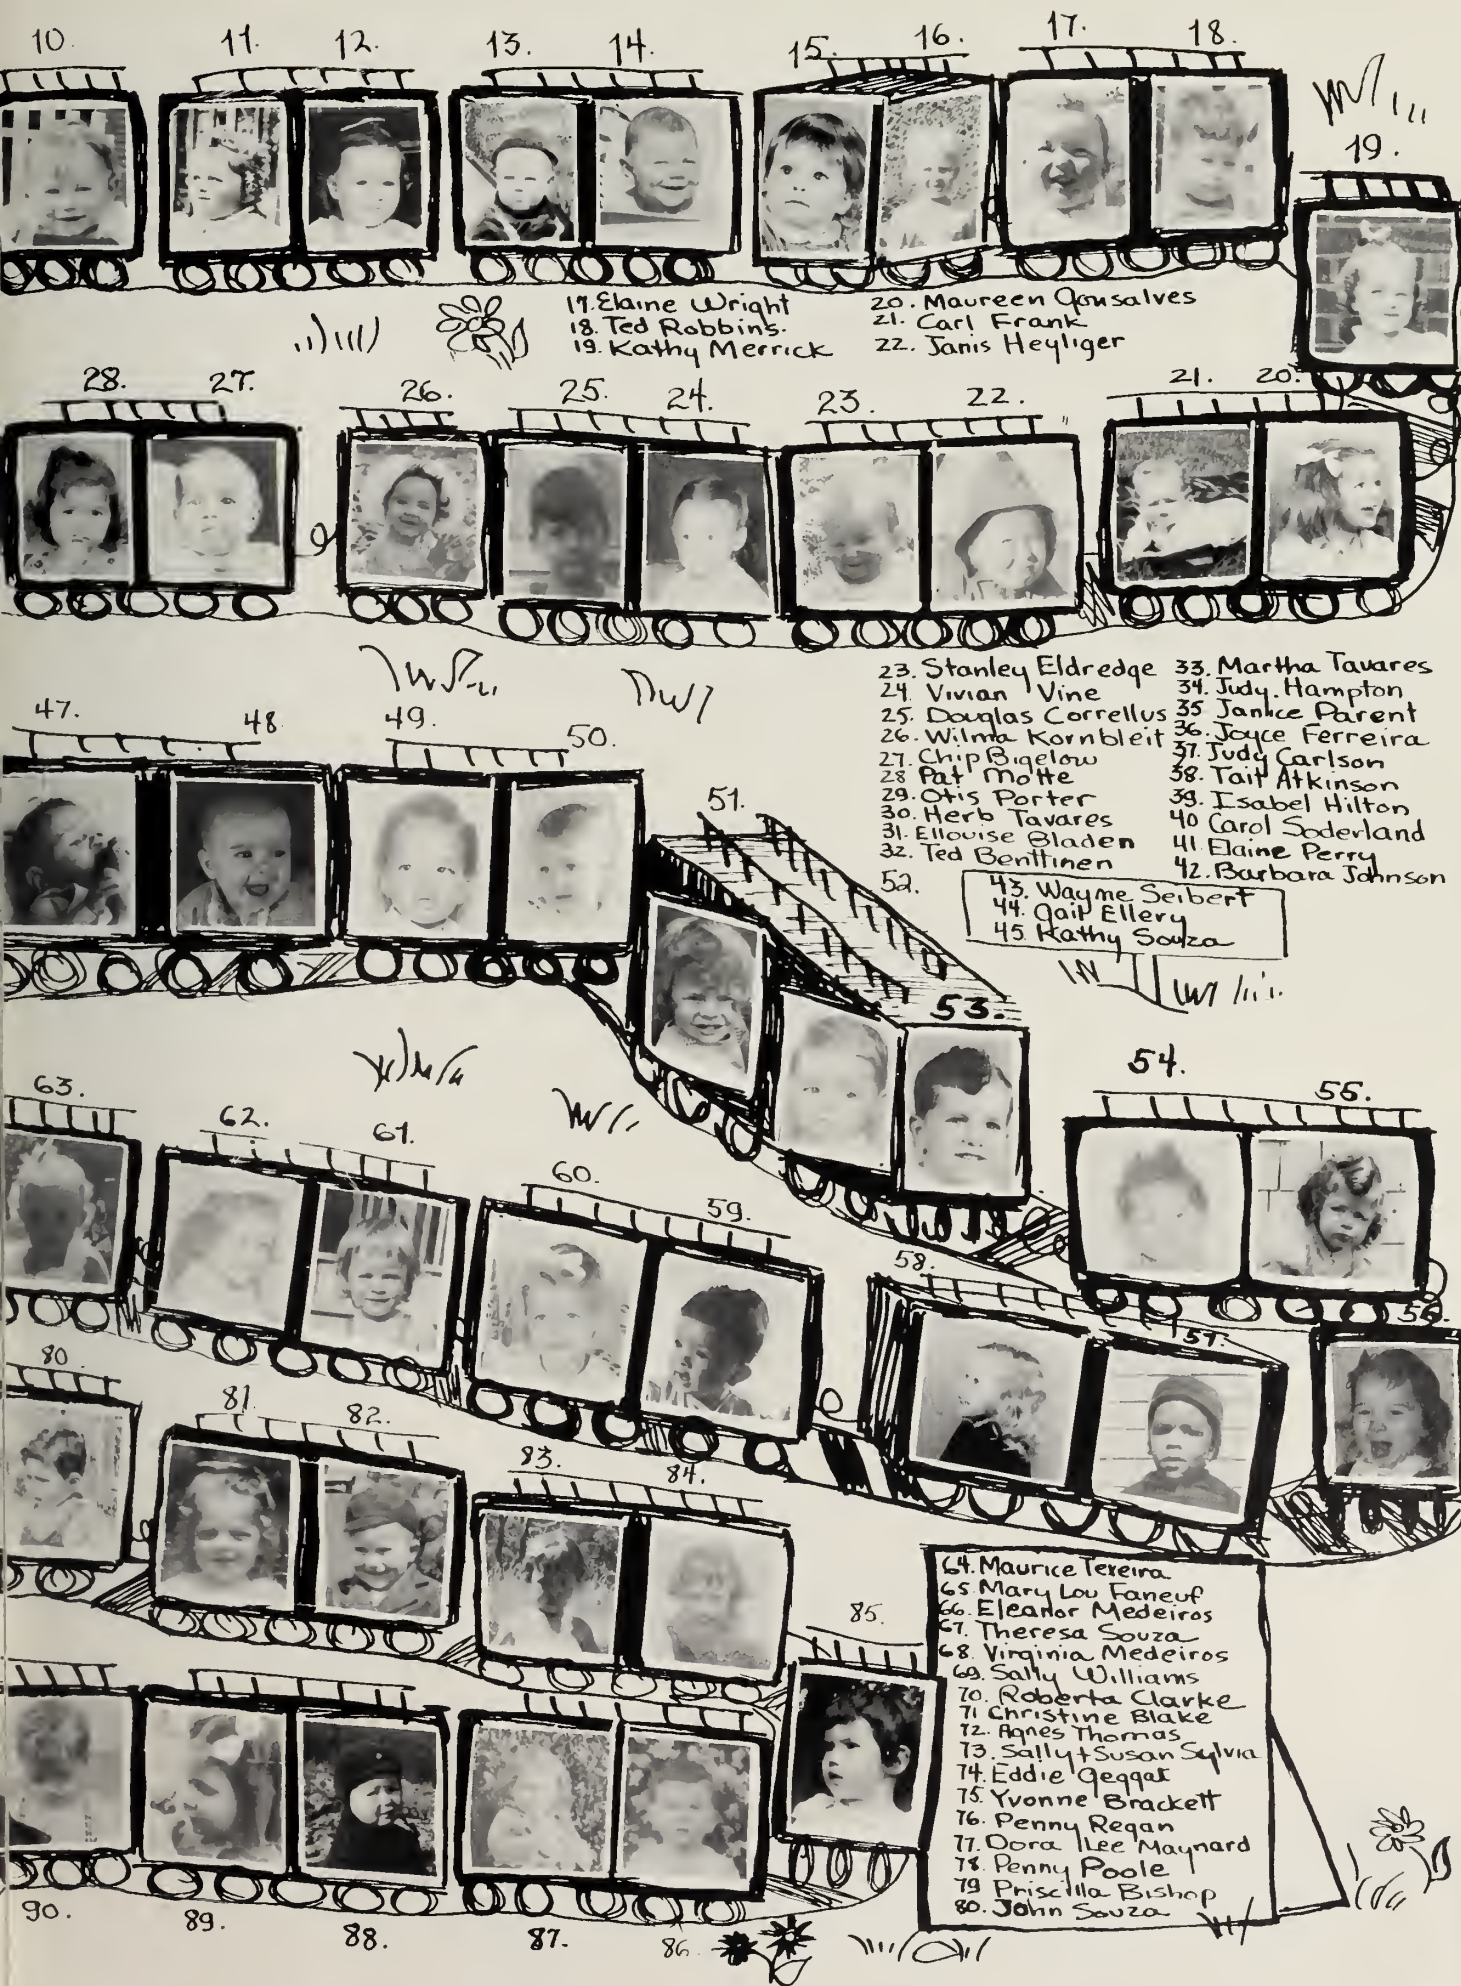 10.
11.
12.
13.
14.
15.
16.
17.
18.
19.
17. Elaine Wright
18. Ted Robbins.
19. Kathy Merrick
20. Maureen Gonsalves
21. Carl Frank
22. Janis Heyliger
28.
27.
26.
25.
24.
23.
22.
21.
20.
23. Stanley Eldredge
24. Vivian Vine
25. Douglas Correllus
26. Wilma Kornbleit
27. Chip Bigelow
28 Pat Motte
29. Otis Porter
30. Herb Tavares
31. Ellouise Bladen
32. Ted Benttinen
33. Martha Tavares
34. Judy Hampton
35 Janice Parent
36. Joyce Ferreira
37. Judy Carlson
38. Tait Atkinson
39. Isabel Hilton
40 Carol Soderland
41. Elaine Perry
42. Barbara Johnson
43. Wayne Seibert
44. Gail Ellery
45. Kathy Souza
47.
48
49.
50.
51.
52.
53.
54.
55.
63.
62.
61.
60.
59.
58.
57.
56.
80
81.
82.
83.
84.
85.
64. Maurice Texeira
65. Mary Lou Faneuf
66. Eleanor Medeiros
67. Theresa Souza
68. Virginia Medeiros
69. Sally Williams
70. Roberta Clarke
71 Christine Blake
72. Agnes Thomas
73. Sally + Susan Sylvia
74. Eddie Geggat
75. Yvonne Brackett
76. Penny Regan
77. Dora Lee Maynard
78. Penny Poole
79 Priscilla Bishop
80. John Souza
90.
89.
88.
87.
86.